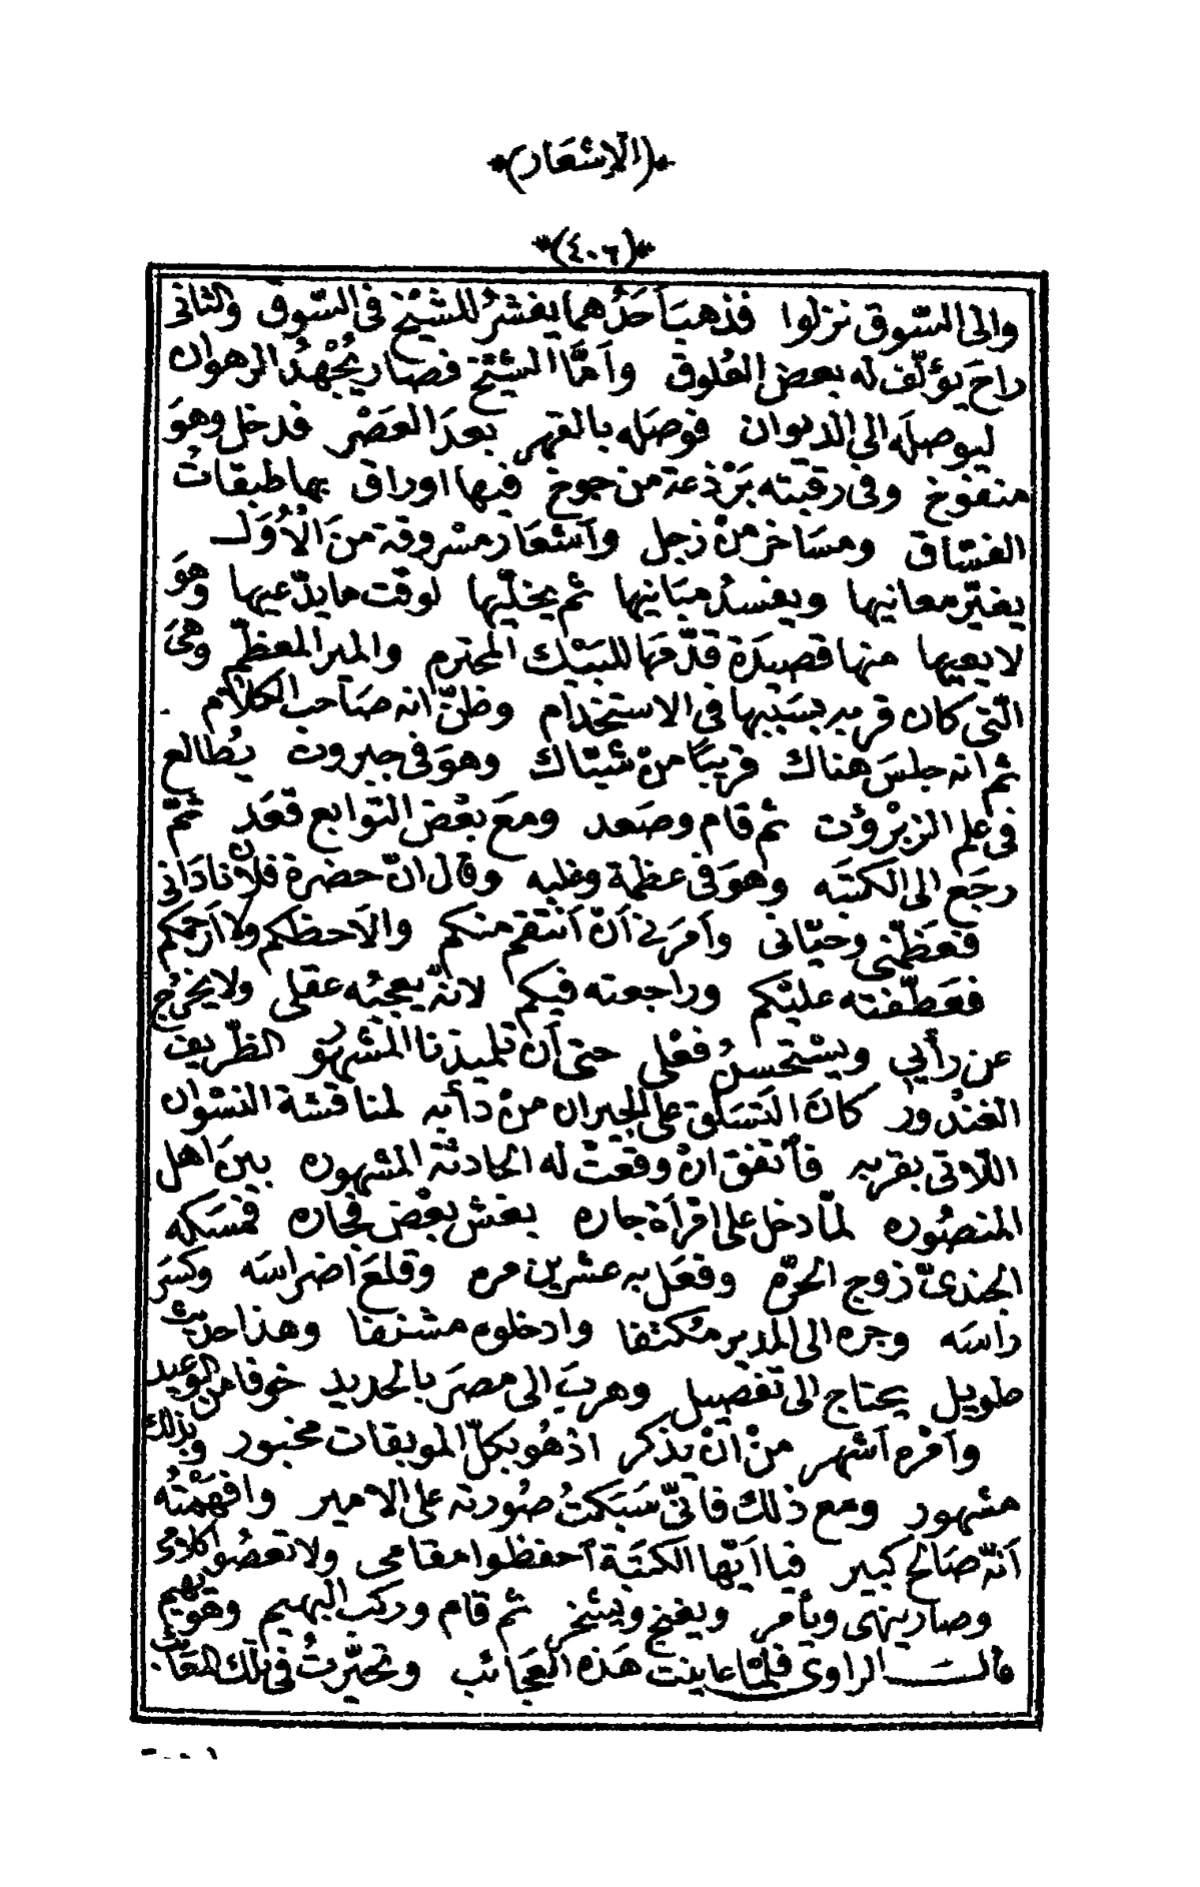 *(الاشعار)*
*(٤٠٦)*
والى السّوق نزلوا فذهب أحَدُهما يفشرُ للشيْخ فى السّوق والثانى
راحَ يؤلّف له بعض العُلوق وأمَّا الشيْخ فصار يُجْهدُ الرهوان
ليوصلَه الى الديوان فوصَله بالقهر بعدَ العَصْر فدخل وهوَ
منفوخ وفى رقبته بَرْذعة من جوخ فيها اوراق بها طبقاتُ
الفسّاق ومسَاخر منْ زجل وأشعَار مسْروقة منَ الْأُوَل
يغيّر معانيها ويفسدُ مبَانيها ثم يخلّيها لوقت ما يدّعيها وهوَ
لا يعيها منها قصيدَة قدّمهَا للبَيْك المحترم والمير المعظّم وهىَ
الّتى كان قربه بسَبَبها فى الاستخدام وظنّ انه صَاحب الكلام
ثم انه جلسَ هناك قريبًا منْ شبّاك وهوَ فى جبروت يُطالع
فى علم الزبرْؤت ثم قام وصَعد ومعَ بعْض التوابع قعَد ثمّ
رجَع الى الكتَبَه وهوَ فى عظمة وغلبه وقال انّ حضرة فلان نادَانى
فعَظّمنى وحيّانى وأمرَنى أنْ أنتقم منكم والَاحظكم ولا أرحمكم
فعَطّفته عليْكم وراجعته فيكم لانّه يعجبُه عقلى ولا يخرُج
عن رأيى ويسْتحسنُ فعْلى حتى أن تلميذنا المشهور الظّريف
الغندُور كانَ التسَلّق على الجيران منْ دأبه لمناقشة النسْوان
اللّاتى بقربه فأتفق انْ وقعَتْ له الحادثة المشهوره بينَ اهل
المنصُوره لمّا دخل على امْرأة جاره يفتش بعْض فجاره فمسَكه
الجندىّ زوج الحرّه وفعَل به عشرين مره وقلعَ اضراسَه وكسَرَ
راسَه وجره الى المدير مُكتفا وادخلوه مشنفا وهذا حديث
طويل يحتاج الى تفصيل وهربَ الى مصرَ بالحديد خوفا من الوعيد
وأمْره أشهر منْ انْ يذكر اذ هُو بكلّ الموبقات مخبور وبذلك
مشهور ومع ذلك فانّى سَبَكتُ صُورته على الامير وافهمْتُه
أنّه صَالح كبير فيا أيّها الكتبَة أحفظوا مقامى ولا تعصُوا كلامى
وصار ينهى ويأمر ويفنخ وينخر ثم قام وركب البهيم وهو يهيم
قالَ الراوى فلمّا عاينت هَذه العجَائب وتحيّرتُ فى تلك المعَائب